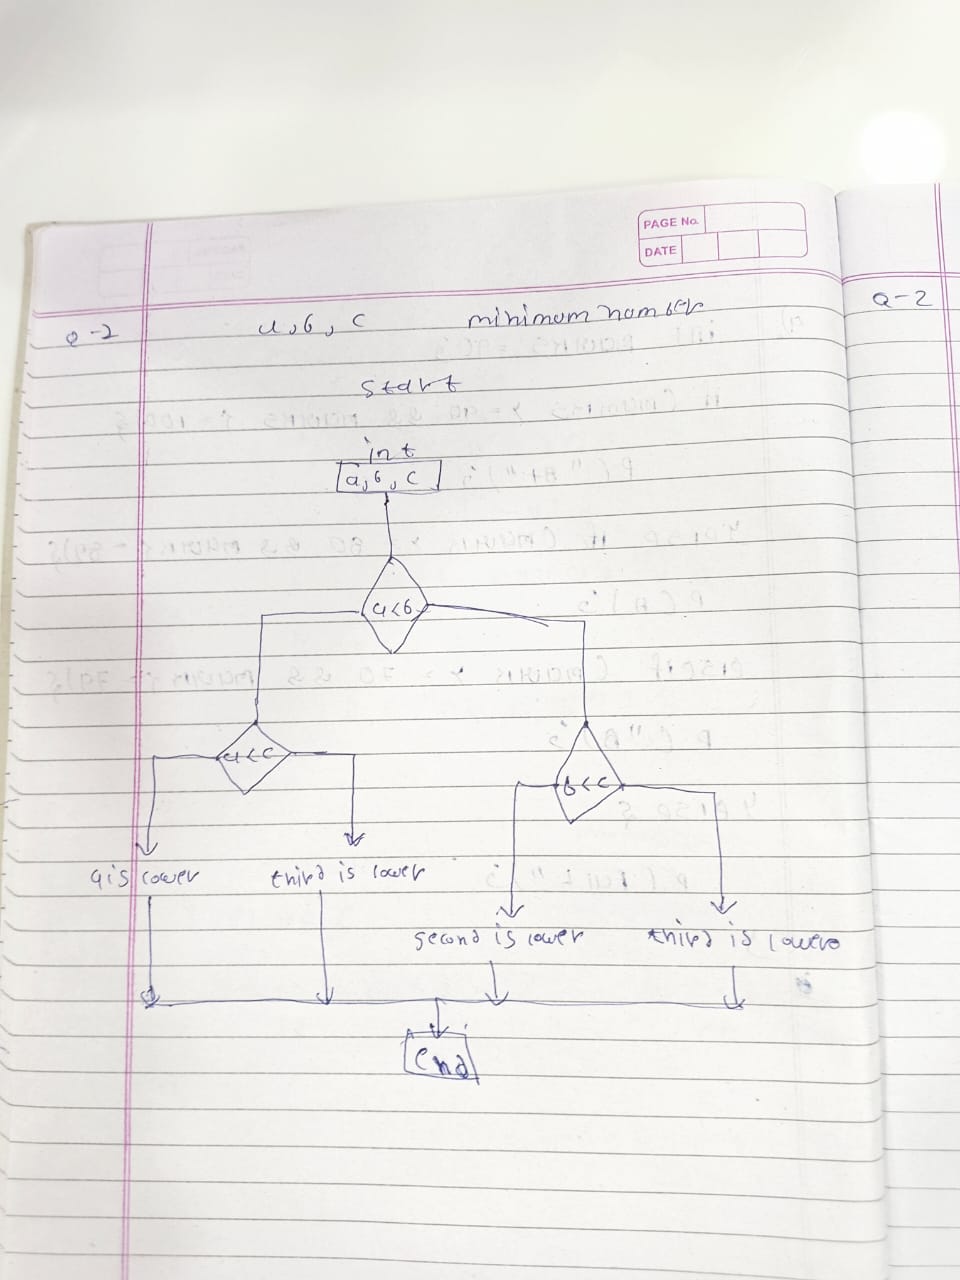 PAGE No.
DATE
Q-2
Q-2 a, b, c minimum number
start
int
a, b, c
a<b
a<c
b<c
a is lower third is lower
second is lower third is lower
End